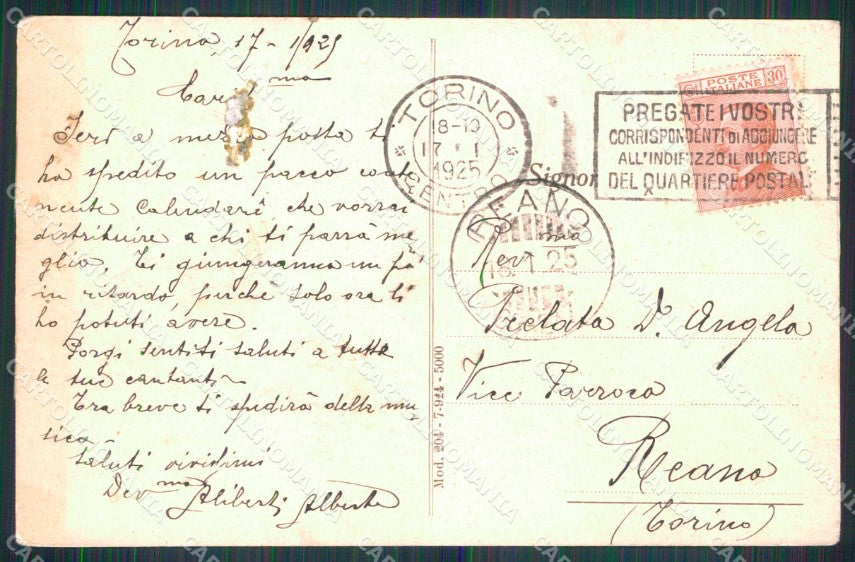 Torino, 17-1/925
Car ma
Ieri a mezzo posta ti
ho spedito un pacco conte
nente Calendari che vorrai
distribuire a chi ti parrà me
glio. Ti giungeranno un pò
in ritardo, perchè solo ora li
ho potuti avere.
Porgi sentiti saluti a tutte
le tue cantanti
Tra breve ti spedirò della mu
sica
Saluti vividimi
Dev ma Aliberti Alberto
Mod. 204 - 7-924 - 5000
TORINO
18-19
17 1
1925
CENTRO
POSTE
ITALIANE 30
PREGATE I VOSTRI
CORRISPONDENTI DI AGGIUNGERE
ALL'INDIRIZZO IL NUMERO
DEL QUARTIERE POSTALE
Signor
REANO
18 1 25
Rev mia
Prelata D. Angela
Vice Parroco
Reano
(Torino)
CARTOLINOMANIA